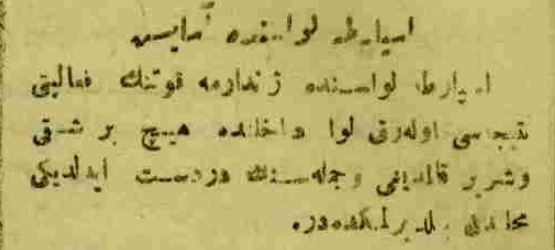 اسپارطه لواسنده آسایش
اسپارطه لواسنده ژاندارمه قوتنك فعالیتی
نتیجه‌سی اوله‌رق لوا داخلنده هیچ بر شقی
و شریر قالمدیغی و جمله‌سنك دردست ایدلدیكی
محلندن بلدیرلمكده‌در.